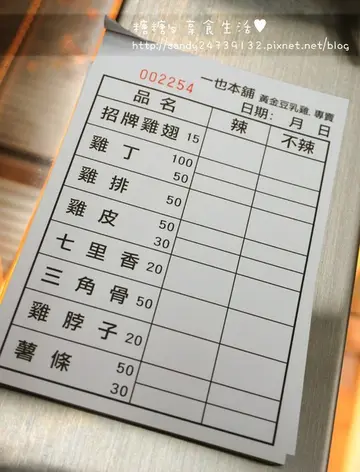 糖糖's 享食生活♥
http://candy24739132.pixnet.net/blog
002254 一也本舖 黃金豆乳雞. 專賣
日期: 月 日
品名 辣 不辣
招牌雞翅 15
雞丁 100
50
雞排 50
雞皮 50
30
七里香 20
三角骨 50
雞脖子 20
薯條 50
30